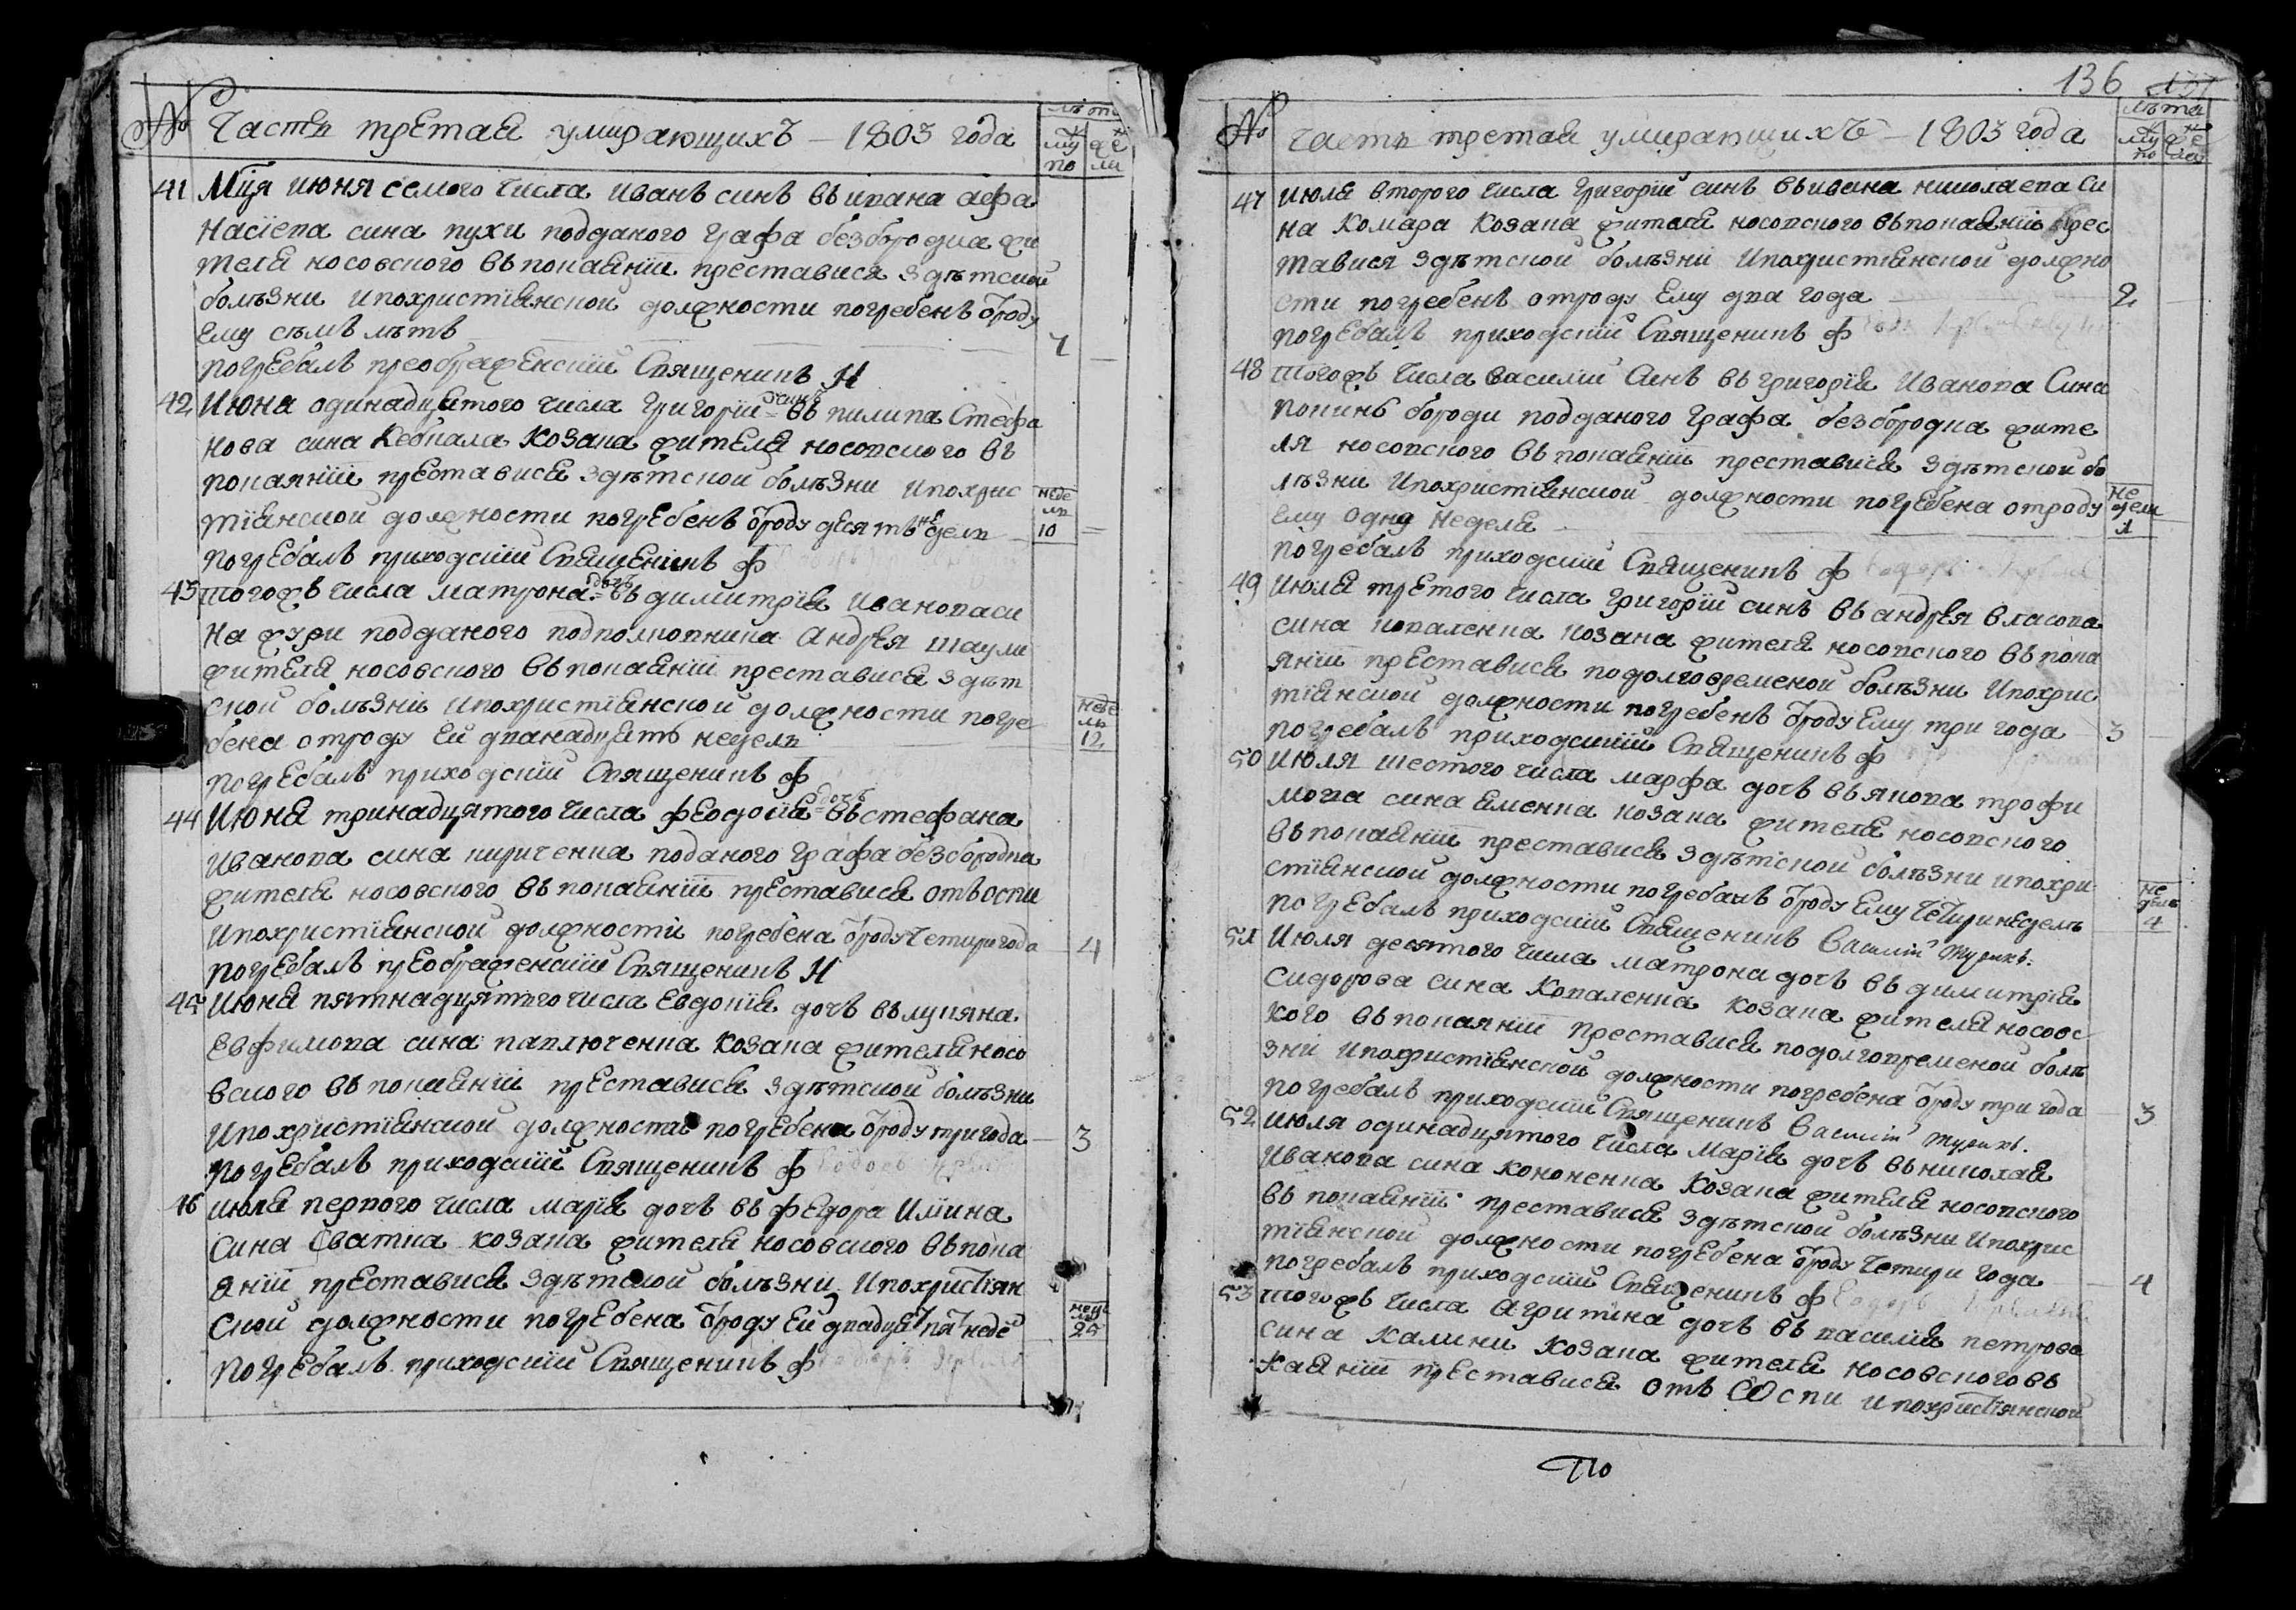 № Часть третая умирающихъ – 1803 года
лѣта
му по
же ли
41 Мця июня семого числа иванъ синъ въ ивана афа
насїева сина пухи подданого графа безбородка жи
теля носовского въ покаянїи преставися з дѣтской
болѣзни и по христїянской должности погребенъ отроду
ему сѣмъ лѣтъ 7
погребалъ преображенскїй священикъ Н
42 Июня одинадцятого числа григорїй синъ въ пилипа Стефа
нова сина Кебкала козака жителя носовского въ
покаянїи преставися з дѣтской болѣзни и по хрис
тїянской должности погребенъ отроду десять недель
неде ль 10
погребалъ приходскїй священикъ ф
43 тогожъ числа матрона дочъ въ димитрїя иванова си
на жури подданого подполковника андрея шаули
жителя носовского въ покаянїи преставися з дѣт
ской болѣзни и по христїянской должности погре
бена отроду ей дванадцять недель
неде ль 12
погребалъ приходскїй священикъ ф
44 Июня тринадцятого числа феодосїя дочъ въ стефана
иванова сина кириченка поданого графа безбородка
жителя носовского въ покаянїи преставися отъ оспи
и по христїянской должности погребена отроду четири года 4
погребалъ преображенскїй священикъ Н
45 Июня пятнадцятого числа евдокїя дочъ въ лукяна
евфимова сина павлюченка козака жителя носо
вского въ покаянїи преставися з дѣтской болѣзни
и по христїянской должности погребена отроду три года 3
погребалъ приходскїй священикъ ф
46 июля первого числа марїя дочъ въ федора
сина Сватка козака жителя носовского въ пока
янїи преставися з дѣтской болѣзни и по христїян
ской должности погребена отроду ей двадцят пят неде
неде ль 25
погребалъ приходскїй священикъ ф
136
№ часть третая умирающихъ – 1803 года
лѣта
му по
же ли
47 июля второго числа григорїй синъ въ ивана николаева си
на комара козака жителя носовского въ покаянїи прес
тавися з дѣтской болѣзнї и по христїянской должно
сти погребенъ отроду ему два года 2
погребалъ приходскїй священикъ ф
48 тогожъ числа василїй синъ въ григорїя иванова сина
бороди подданого графа безбородка жите
ля носовского въ покаянїи преставися з дѣтской бо
лѣзни и по христїянской должности погребена отроду
ему одна неделя
не дели 1
погребалъ приходскїй священикъ ф
49 июля третого числа григорїй синъ въ андрея власова
сина коваленка козака жителя носовского въ пока
янїи преставися по долговременой болѣзни и по хрис
тїянской должности погребенъ отроду ему три года 3
погребалъ приходскїй священикъ ф
50 июля шестого числа марфа дочъ въ якова трофи
мова сина еменка козака жителя носовского
въ покаянїи преставися з дѣтской болѣзни и по хри
стїянской должности погребанъ отроду ему четири недель
не дель 4
погребалъ приходскїй священикъ Василїй Турикъ.
51 Июля десятого числа матрона дочъ въ димитрїя
сидорова сина коваленка козака жителя носовс
кого въ покаянїи преставися по долговременой болѣ
зни и по христїянской должности погребена отроду три года 3
погребалъ приходскїй священикъ Василїй Турикъ.
52 июля одинадцятого числа марїя дочъ въ николая
иванова сина кононенка козака жителя носовского
въ покаянїи преставися з дѣтской болѣзни и по хрис
тїянской должности погребена отроду четири года 4
погребалъ приходскїй священикъ ф
53 тогожъ числа агрипина дочъ въ василїя петрова
сина калини козака жителя носовского въ
каянїи преставися отъ оспи и по христїянской
по